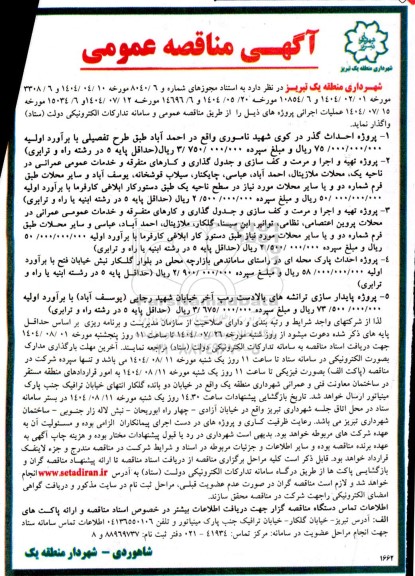 آگهی مناقصه عمومی
شهرداری منطقه یک تبریز
شهرداری منطقه یک تبریز در نظر دارد به استناد مجوزهای شماره و ۸۰۴۰/۶ مورخه ۱۴۰۴/۰۴/۱۰ و ۳۳۰۸/۶
مورخه ۱۴۰۴/۰۲/۰۱ و ۱۰۸۵۴/۶ مورخه ۱۴۰۴/۰۵/۲۰ و ۱۴۶۹۶/۶ مورخه ۱۴۰۴/۰۷/۱۲ و ۱۵۰۳۴/۶ مورخه
۱۴۰۴/۰۷/۱۵ عملیات اجرائی پروژه های ذیل را از طریق مناقصه عمومی و سامانه تدارکات الکترونیکی دولت (ستاد)
واگذار نماید.
۱- پروژه احداث گذر در کوی شهید ناموری واقع در احمد آباد طبق طرح تفصیلی با برآورد اولیه
۷۵/۰۰۰/۰۰۰/۰۰۰ ریال و مبلغ سپرده ۳/۷۵۰/۰۰۰/۰۰۰ ریال(حداقل پایه ۵ در رشته راه و ترابری)
۲- پروژه تهیه و اجرا و مرمت و کف سازی و جدول گذاری و کارهای متفرقه و خدمات عمومی عمرانی در
ناحیه یک، محلات ملازینال، احمد آباد، عباسی، چایکنار، سیلاب قوشخانه، یوسف آباد و سایر محلات طبق
فرم شماره دو و یا سایر محلات مورد نیاز در سطح ناحیه یک طبق دستورکار ابلاغی کارفرما با برآورد اولیه
۵۰/۰۰۰/۰۰۰/۰۰۰ ریال و مبلغ سپرده ۲/۵۰۰/۰۰۰/۰۰۰ ریال (حداقل پایه ۵ در رشته ابنیه یا راه و ترابری)
۳- پروژه تهیه و اجرا و مرمت و کف سازی و جدول گذاری و کارهای متفرقه و خدمات عمومی عمرانی در
محلات پروین اعتصامی، نظامی، توانیر، ابن سینا، گلکار، ملازینال، احمد آباد، عباسی، و سایر محلات طبق
فرم شماره دو و یا سایر محلات مورد نیاز طبق دستور کار ابلاغی کارفرما با برآورد اولیه ۵۰/۰۰۰/۰۰۰/۰۰۰
ریال و مبلغ سپرده ۲/۵۰۰/۰۰۰/۰۰۰ ریال (حداقل پایه ۵ در رشته ابنیه یا راه و ترابری)
۴- پروژه احداث پارک محله ای در راستای ساماندهی بازارچه محلی در بلوار گلکار نبش خیابان فتح با برآورد
اولیه ۵۸/۰۰۰/۰۰۰/۰۰۰ ریال و مبلغ سپرده ۲/۹۰۰/۰۰۰/۰۰۰ ریال (حداقل پایه ۵ در رشته ابنیه یا راه و
ترابری)
۵- پروژه پایدار سازی ترانشه های بالادست رمپ آخر خیابان شهید رجایی (یوسف آباد) با برآورد اولیه
۷۳/۵۰۰/۰۰۰/۰۰۰ ریال و مبلغ سپرده ۳/۶۷۵/۰۰۰/۰۰۰ ریال (حداقل پایه ۵ در رشته راه و ترابری)
لذا از شرکتهای واجد شرایط و رتبه بندی و دارای صلاحیت از سازمان مدیریت و برنامه ریزی بر اساس حداقل
پایه های ذکر شده دعوت میشود از روز شنبه مورخه ۱۴۰۴/۰۷/۲۶ تا ساعت ۱۱ روز پنجشنبه مورخه ۱۴۰۴/۰۸/۰۱
جهت دریافت اسناد مناقصه به سامانه تدارکات الکترونیکی دولت(ستاد) مراجعه نمایند. آخرین مهلت بارگذاری مدارک
بصورت الکترونیکی در سامانه ستاد تا ساعت ۱۱ روز یک شنبه مورخه ۱۴۰۴/۰۸/۱۱ می باشد و تنها سپرده شرکت در
مناقصه (پاکت الف) بصورت فیزیکی تا ساعت ۱۱ روز یک شنبه مورخه ۱۴۰۴/۰۸/۱۱ به امور قراردادهای منطقه مستقر
در ساختمان معاونت فنی و عمرانی شهرداری منطقه یک واقع در خیابان دو یانده گلکار انتهای خیابان ترافیک جنب پارک
مینیاتور ارسال خواهد شد. تاریخ بازگشایی پیشنهادات ساعت ۱۴:۳۰ روز یک شنبه مورخه ۱۴۰۴/۰۸/۱۱ در بستر سامانه
ستاد در محل اتاق جلسه شهرداری تبریز واقع در خیابان آزادی - چهار راه ابوریحان - نبش لاله زار جنوبی - ساختمان
شهرداری تبریز می باشد. رعایت ظرفیت کاری و پروژه های در دست اجرای پیمانکاران الزامی بوده و مسئولیت آن به
عهده شرکت های مربوطه خواهد بود. بدیهی است شهرداری در رد یا قبول پیشنهادات مختار بوده و هزینه چاپ آگهی به
عهده برنده مناقصه بوده و سایر اطلاعات و جزئیات مربوطه در اسناد و شرایط شرکت در مناقصه مندرج و جزء لاینفک
قرارداد خواهد بود. قابل ذکر است کلیه مراحل برگزاری مناقصه از دریافت اسناد مناقصه تا ارائه پیشنهاد مناقصه گران و
بازگشایی پاکت ها از طریق درگاه سامانه تدارکات الکترونیکی دولت (ستاد) به آدرس www.setadiran.ir انجام
خواهد شد و لازم است مناقصه گران در صورت عدم عضویت قبلی، مراحل ثبت نام در سایت مذکور و دریافت گواهی
امضای الکترونیکی راجهت شرکت در مناقصه محقق سازند.
اطلاعات تماس دستگاه مناقصه گزار جهت دریافت اطلاعات بیشتر در خصوص اسناد مناقصه و ارائه پاکت های
الف: آدرس تبریز- خیابان گلکار- خیابان ترافیک جنب پارک مینیاتور و تلفن ۰۴۱۳۶۵۵۰۱۰۶ اطلاعات تماس سامانه ستاد
جهت انجام مراحل عضویت در سامانه: مرکز تماس: ۴۱۹۳۴ - ۰۲۱ دفتر ثبت نام: ۸۸۹۶۹۷۳۷ و ۸
شاهوردی - شهردار منطقه یک
۱۶۶۲